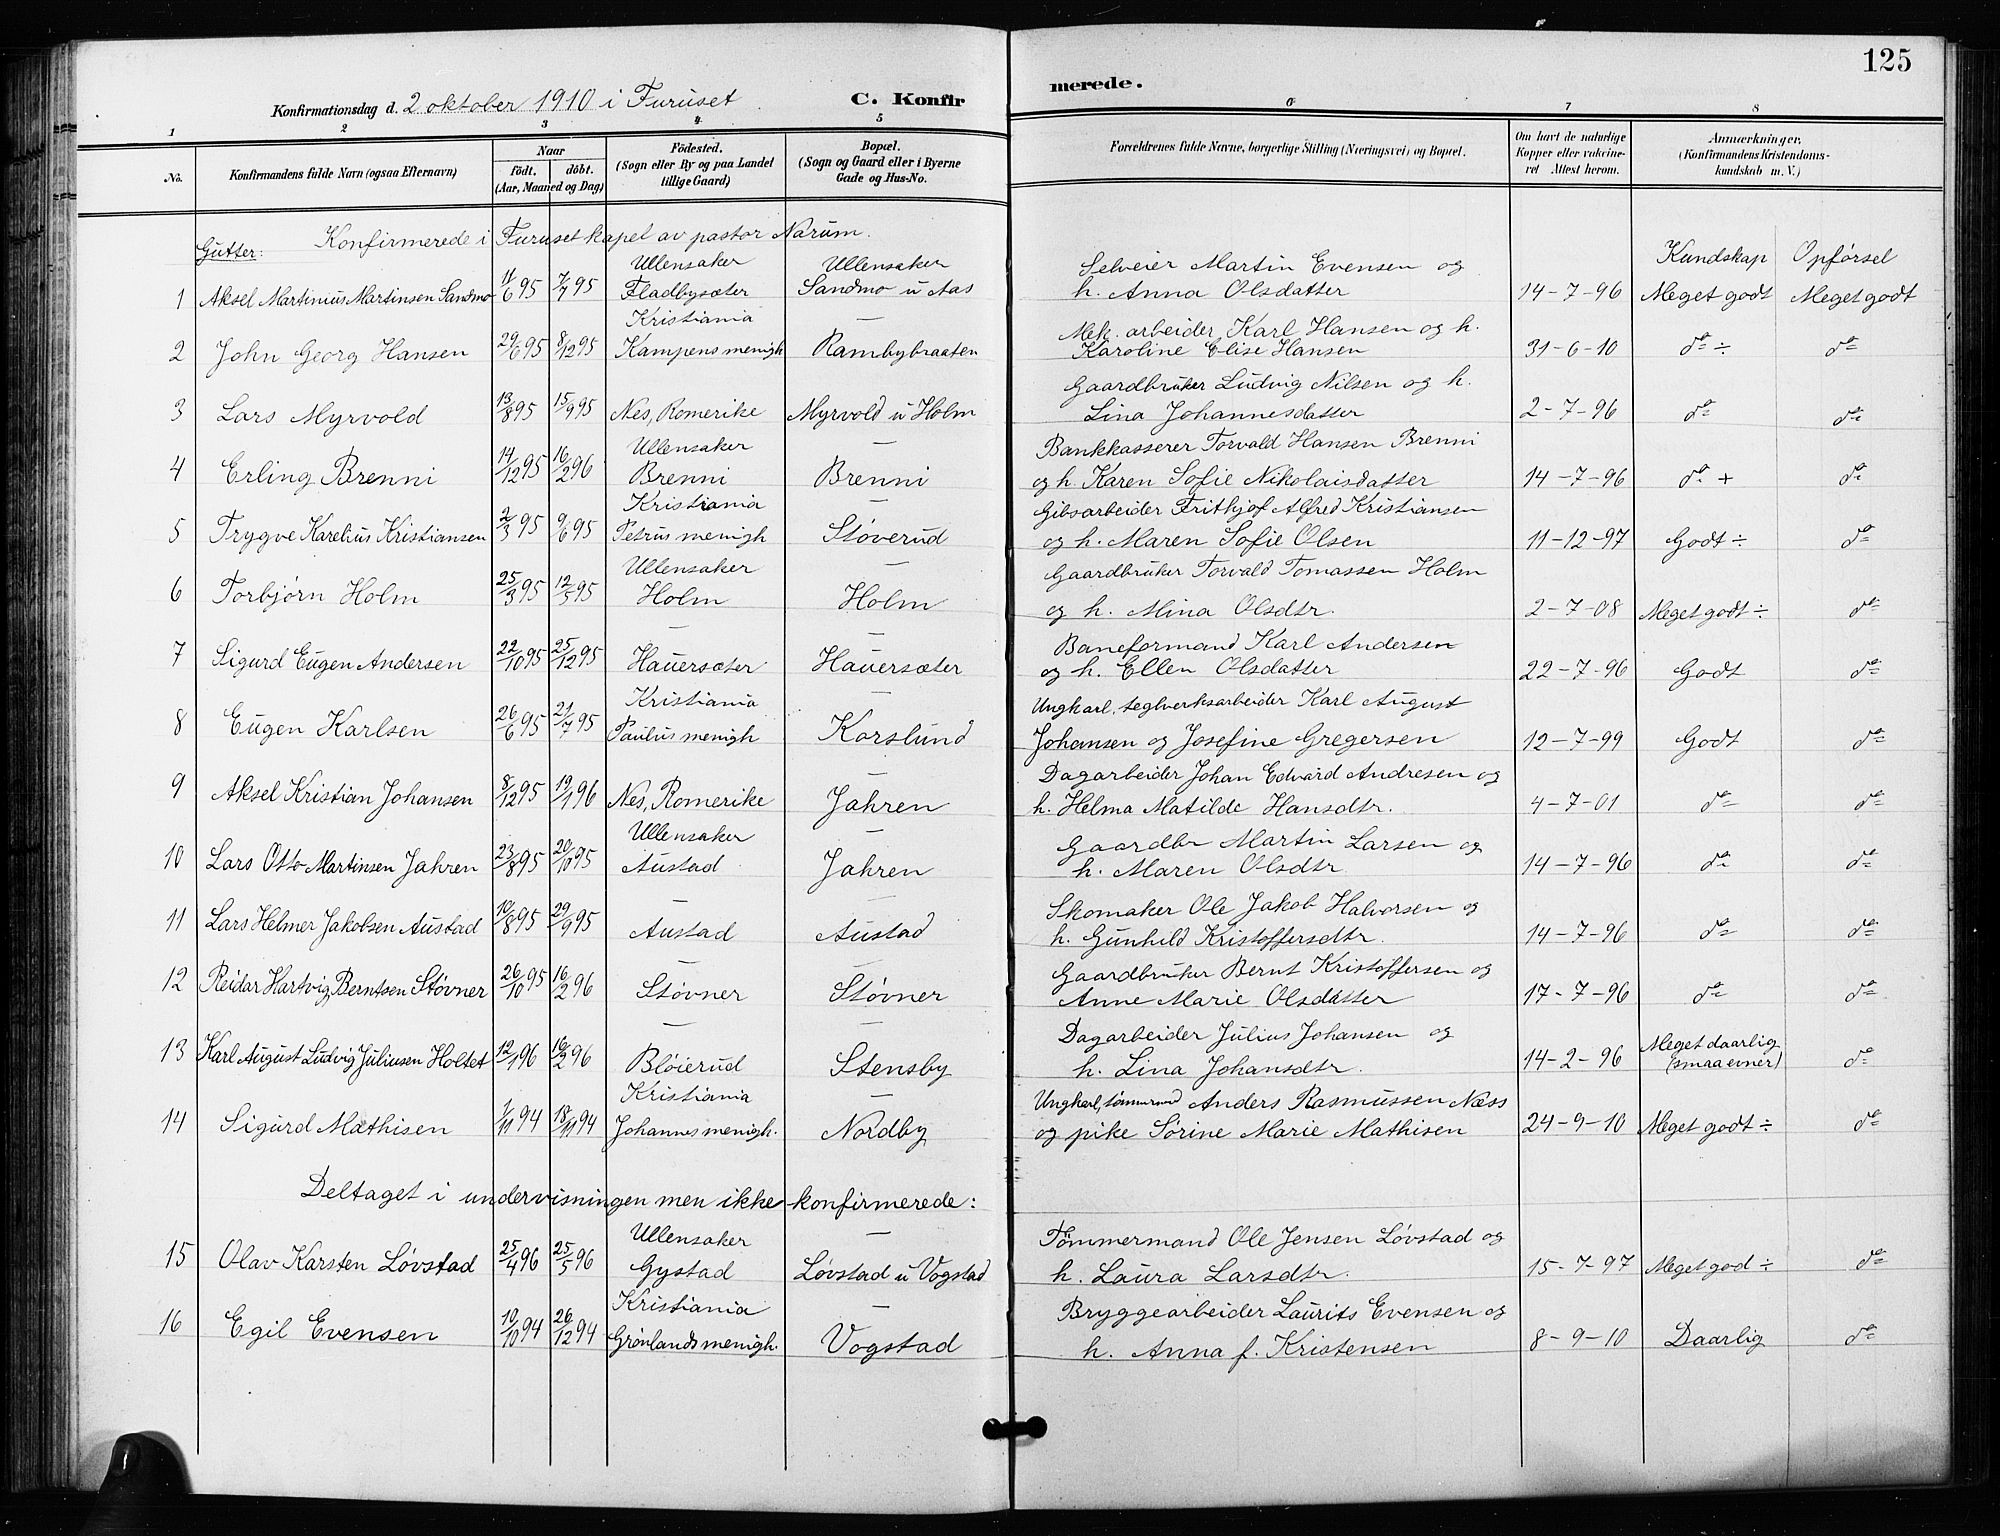 125
Konfirmationsdag d. 2 oktober 1910 i Furuset. C. Konfirmerede.
1 2 3 4 5 6 7 8
No. Konfirmandens fulde Navn (ogsaa Efternavn) Naar født. døbt. (Aar, Maaned og Dag) Födested. (Sogn eller By og paa Landet tillige Gaard) Bopæl. (Sogn og Gaard eller i Byerne Gade og Hus-No. Forældrenes fulde Navne, borgerlige Stilling (Næringsvei) og Bopæl. Om havt de naturlige Kopper eller vakcineret Attest herom. Anmærkninger, (Konfirmandens Kristendomskundskab m. V.)
Konfirmerede i Furuset kapel av pastor Narum.
Gutter: Kundskap Opførsel
1 Aksel Martinius Martinsen Sandmo 11/6 95 7/7 95 Ullensaker Fladbysæter Ullensaker Sandmo u Aas Selveier Martin Evensen og h. Anna Olsdatter 14-7-96 Meget godt Meget godt
2 John Georg Hansen 29/6 95 8/12 95 Kristiania Kampens menigh — Rambybraaten Mek. arbeider Karl Hansen og h. Karoline Elise Hansen 31-6-10 do ÷ do
3 Lars Myrvold 13/8 95 15/9 95 Nes, Romerike Myrvold u Holm Gaardbruker Ludvig Nilsen og h. Lina Johannesdatter 2-7-96 do do
4 Erling Brenni 14/12 95 16/2 96 Ullensaker Brenni — Brenni Bankkasserer Torvald Hansen Brenni og h Karen Sofie Nikolaisdatter 14-7-96 do + do
5 Trygve Karelius Kristiansen 2/3 95 9/6 95 Kristiania Petrus menigh — Støverud Gibsarbeider Frithjof Alfred Kristiansen og h. Maren Sofie Olsen 11-12-97 Godt ÷ do
6 Torbjørn Holm 25/3 95 12/5 95 Ullensaker Holm — Holm Gaardbruker Torvald Tomassen Holm og h. Mina Olsdtr. 2-7-08 Meget godt ÷ do
7 Sigurd Eugen Andersen 22/10 95 25/12 95 — Hauersæter — Hauersæter Baneformand Karl Andersen og h. Ellen Olsdatter 22-7-96 Godt do
8 Eugen Karlsen 26/6 95 21/7 95 Kristiania Paulus menigh — Korslund Ungkarl, teglverksarbeider Karl August Johansen og Josefine Gregersen 12-7-99 Godt do
9 Aksel Kristian Johansen 8/12 95 19/1 96 Nes, Romerike — Jahren Dagarbeider Johan Edvard Andresen og h. Helma Matilde Hansdtr. 4-7-01 do do
10 Lars Otto Martinsen Jahren 23/8 95 20/10 95 Ullensaker Austad — Jahren Gaardbr Martin Larsen og h. Maren Olsdtr. 14-7-96 do do
11 Lars Helmer Jakobsen Austad 10/8 95 29/9 95 — Austad — Austad Skomaker Ole Jakob Halvorsen og h. Gunhild Kristoffersdtr. 14-7-96 do do
12 Reidar Hartvig Berntsen Støvner 26/10 95 16/2 96 — Støvner — Støvner Gaardbruker Bernt Kristoffersen og Anne Marie Olsdatter 17-7-96 do do
13 Karl August Ludvig Juliusen Holtet 12/1 96 16/2 96 — Bløierud — Stensby Dagarbeider Julius Johansen og h. Lina Johansdtr. 14-2-96 Meget daarlig (smaa evner) do
14 Sigurd Mathisen 1/11 94 18/11 94 Kristiania Johannes menigh. — Nordby Ungkarl, tømmermd Anders Rasmussen Næss og pike Sørine Marie Mathisen 24-9-10 Meget godt ÷ do
Deltaget i undervisningen men ikke konfirmerede:
15 Olav Karsten Løvstad 25/4 96 25/5 96 Ullensaker Gystad — Løvstad u Vogstad Tømmermand Ole Jensen Løvstad og h. Laura Larsdtr. 15-7-97 Meget god ÷ do
16 Egil Evensen 10/10 94 26/12 94 Kristiania Grønlands menigh. — Vogstad Bryggearbeider Laurits Evensen og h. Anna f. Kristensen 8-9-10 Daarlig do